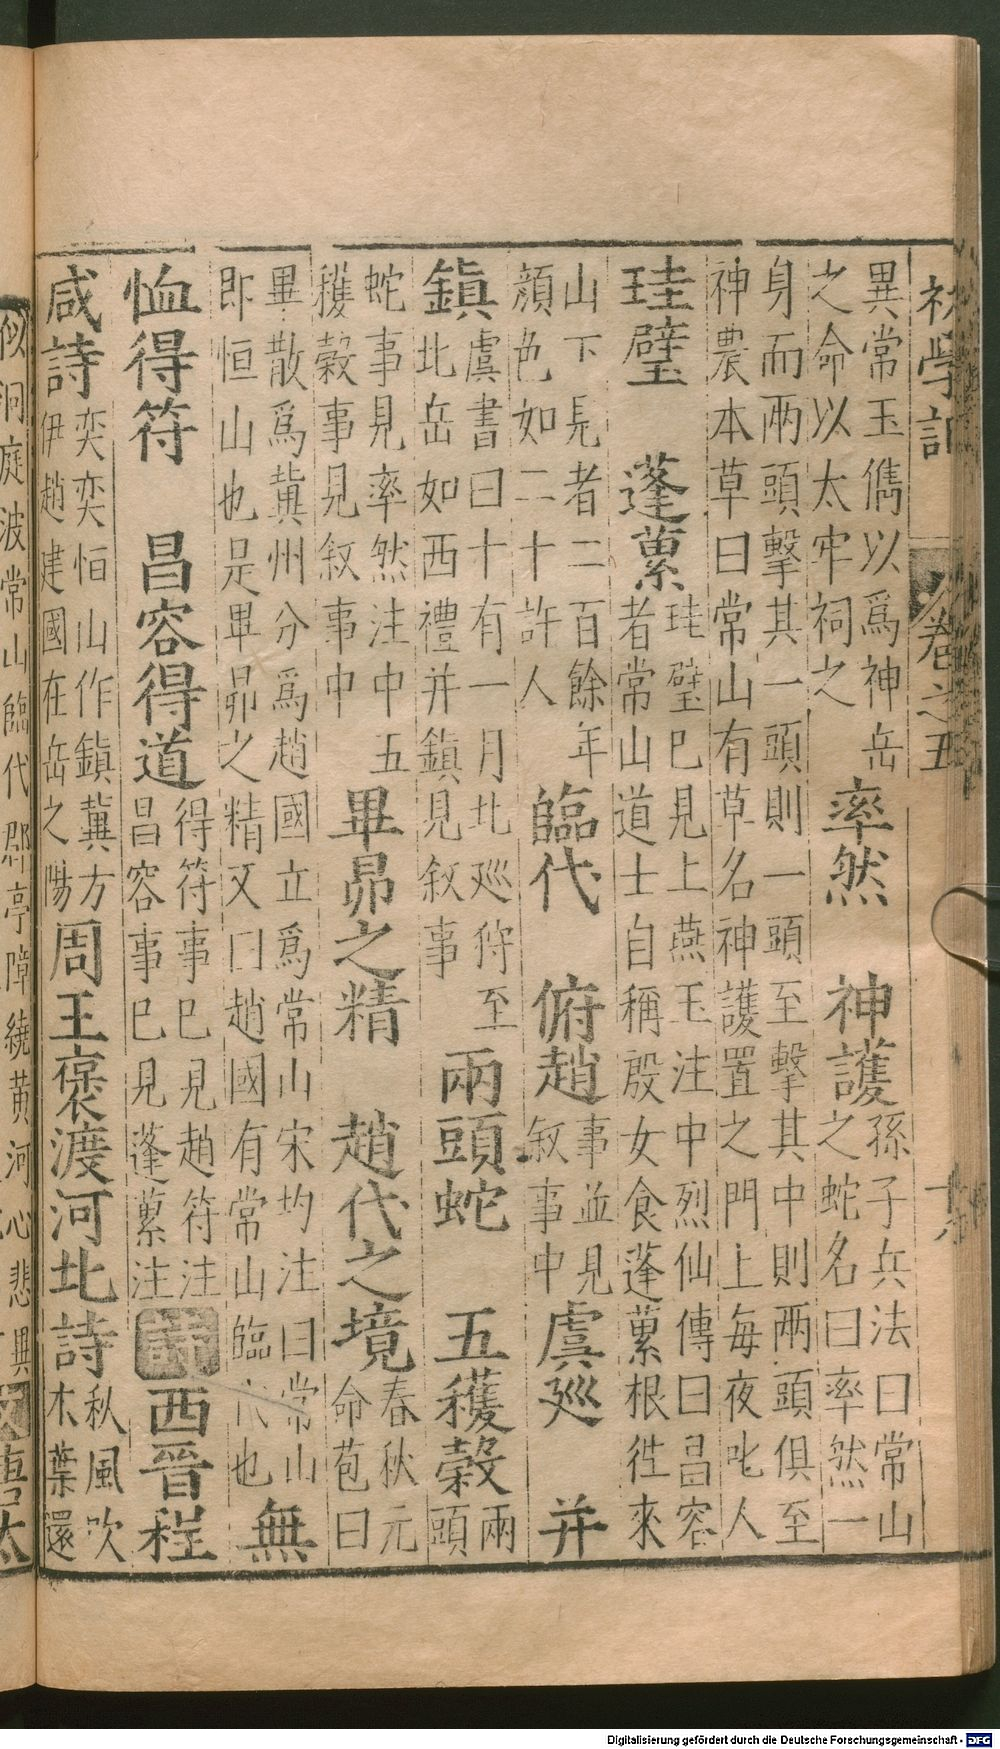 初學記 卷之五 十六
異常玉儁以爲神岳
之命以太牢祠之
率然
神護
孫子兵法曰常山
之蛇名曰率然一
身而兩頭擊其一頭則一頭至擊其中則兩頭俱至
神農本草曰常山有草名神護置之門上每夜叱人
珪璧
蓬蔂
珪璧已見上燕玉注中烈仙傳曰昌容
者常山道士自稱殷女食蓬蔂根徃來
山下見者二百餘年
顔色如二十許人
臨代
俯趙
事並見
叙事中
虞廵
并
鎮
虞書曰十有一月北廵狩至
北岳如西禮并鎮見叙事
兩頭蛇
五穫榖
兩
頭
蛇事見率然注中五
穫榖事見叙事中
畢昴之精
趙代之境
春秋元
命苞曰
畢散爲冀州分爲趙國立爲常山宋均注曰常山
即恒山也是畢昴之精又曰趙國有常山臨代也
無
恤得符
昌容得道
得符事已見趙符注
昌容事已見蓬蔂注
詩
西晉程
咸詩
奕奕恒山作鎮冀方
伊趙建國在岳之陽
周王褒渡河北詩
秋風吹
木葉還
似洞庭波常山臨代郡亭障繞黃河心悲異
唐太
Digitalisierung gefördert durch die Deutsche Forschungsgemeinschaft - DFG